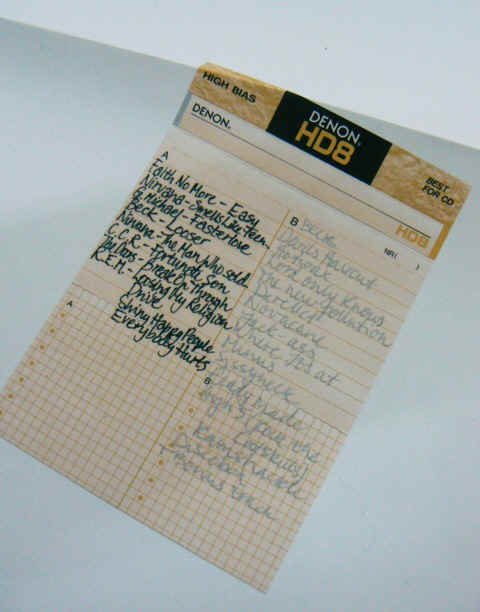 HIGH BIAS
DENON
HD8
BEST
FOR CD
DENON
HD8
A
Faith No More - Easy
Nirvana - Smells Like Teen
G. Michael - Fastlove
Beck - Looser
Nirvana - The Man Who Sold
C.C.R. - Fortunate Son
The Doors - Break On Through
R.E.M. - Losing My Religion
Drive
Shiny Happy People
Everybody Hurts
A
B
NR(
)
Beck
Devils Haircut
Hotwax
Lord only Knows
The new Pollution
Derelict
Novacane
Jack-ass
Where It's at
Minus
Sissyneck
B
Ready Made
High 5 (Rock the
Catskills)
Ramshackle
Diskobox
+ Bonus track